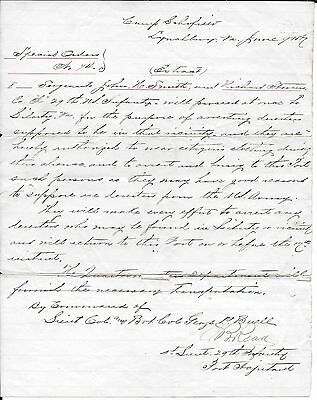 Camp Schofield
Lynchburg Va June
Special Orders
No 74
(Extract)
Sergeants John W. Smith and Richard
Co F. 29th US Infantry will proceed at once to
Liberty Va for the purpose of arresting deserters
supposed to be in that vicinity and they are
hereby authorized to wear citizens clothing during
their absence and to arrest and bring to this Post
such persons as they may have good reasons
to suppose are deserters from the US Army.
They will make every effort to arrest any
deserters who may be found in Liberty or vicinity
and will return to this Post on or before the
instant.
The Quartermasters Department will
furnish the necessary transportation.
By Command of
Lieut Col. and Bvt Col Geo P. Buell
Read
1st Lieut. 29th Infantry
Post Adjutant